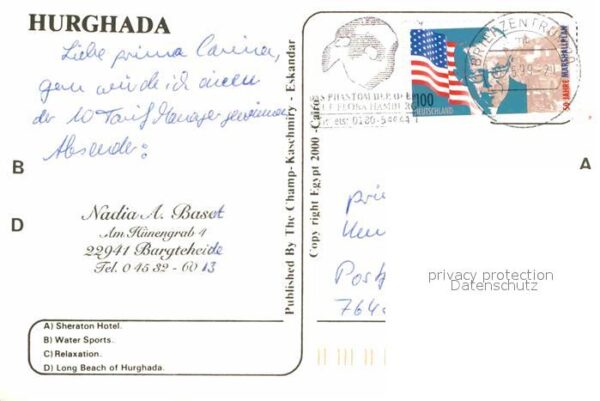 HURGHADA
Liebe prima Carina,
gern würde ich einen
der 10 Tarif Manager gewinnen
Absender:
B
D
Nadia A. Basot
Am Hünengrab 4
22941 Bargteheide
Tel. 0 45 32 - 60 13
A) Sheraton Hotel.
B) Water Sports.
C) Relaxation.
D) Long Beach of Hurghada.
Published By The Champ-Kaschmiry - Eskandar
Copy right Egypt 2000 - Cairo
DAS PHANTOM DER OPER
FLORA HAMBURG
0180-54444
BRIEFZENTRUM
100
DEUTSCHLAND
50 JAHRE MARSHALLPLAN
A
Post
764
privacy protection
Datenschutz